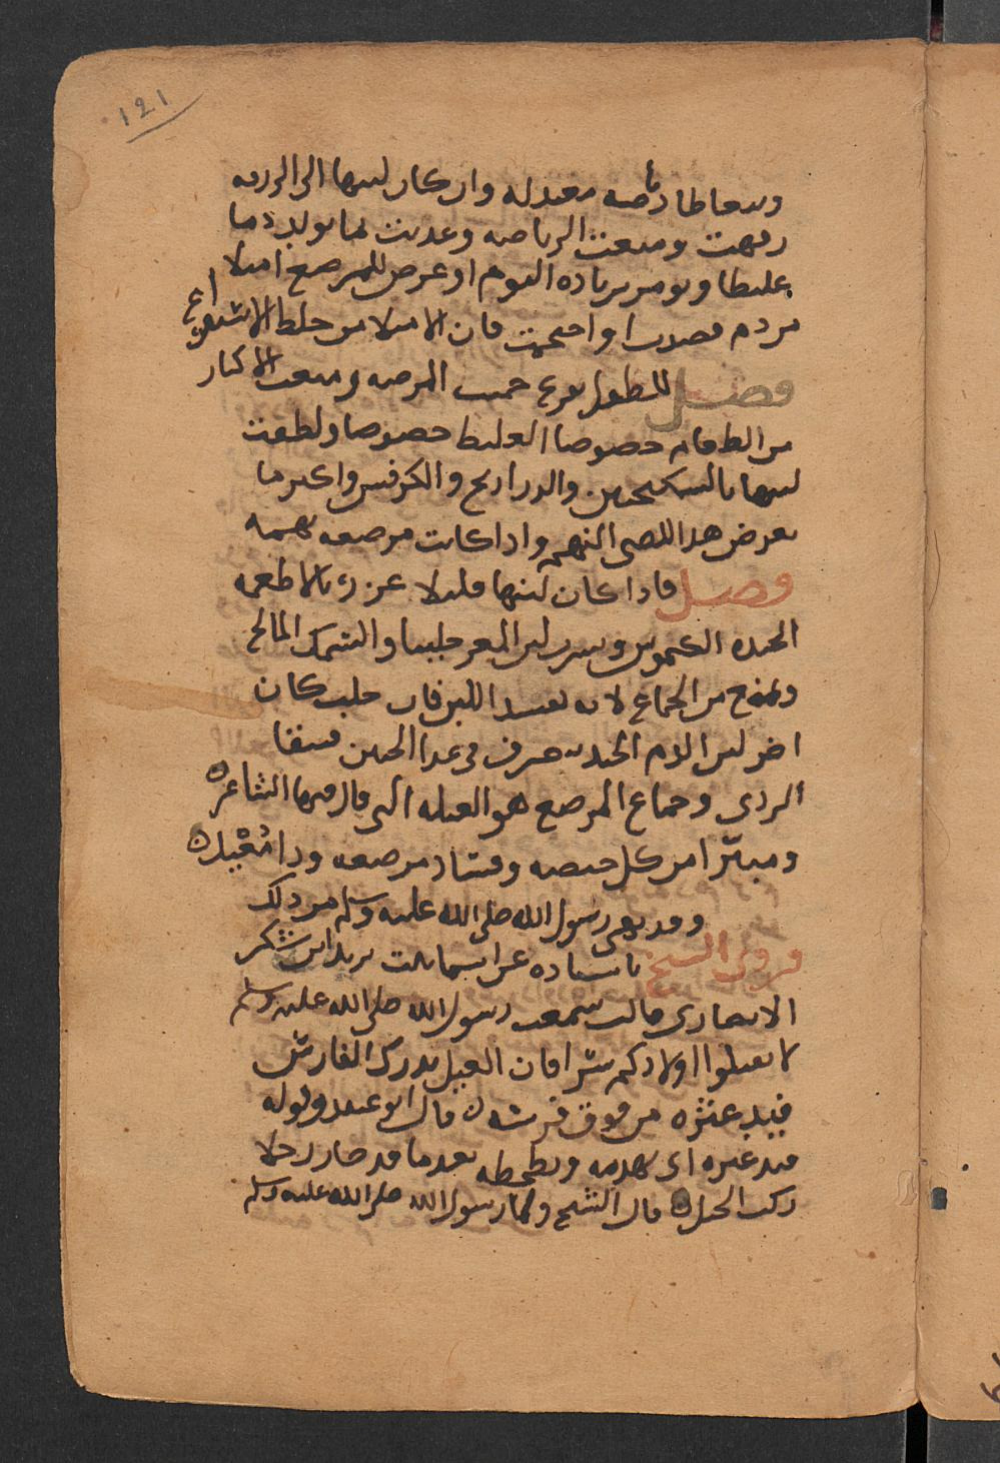 ١٢١
وتتعاطا رياضه معتدله وان كان لبنها الى الرقه
رفهت ومنعت الرياضه وغديت بما يولد دما
غليظا ويومر بزياده النوم او عرض للمرضع امتلا
من دم فصدت او احتجمت فان الامتلا من خلط الاستفراغ
فصل للطفل نوع حميت المرضعه ومنعت الاكثار
من الطعام خصوصا الغليظ خصوصا ولطفت
لبنها بالسكنجبين والدراريج والكرفس واكثر ما
يعرض هدا للصبى النهم وادا كانت مرضعه نهمه
فصل فادا كان لبنها قليلا غزرى بالاطعمه
الجيده الكيموس وبشرب لبن المعز حليبا والسمك المالح
وتمنع من الجماع لانه يفسد اللبن فان حبلت كان
اضر لبن الدم الجيد ينصرف فى غدا الجنين فيبقا
الردى وجماع المرضع هو الغيله التى قال فيها الشاعر
ومبرّئ من كل حيضه وفساد مرضعه ودا مُغْيِل
وقد نهى رسول الله صلى الله عليه وسلم من دلك
فروى الشيخ باسناده عن اسما بنت يزيد ابن السكن
الانصارى قالت سمعت رسول الله صلى الله عليه وسلم
لا تقتلوا اولادكم سرا فان الغيل يدرك الفارس
فيدعثره من فوق فرسه قال ابو عبيد وقوله
فيدعثره اى يهدمه ويطحطه بعدما قد صار رجلا
ركب الخيل قال الشيخ ولما رسول الله صلى الله عليه وسلم